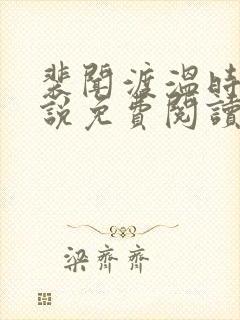 裴聞渡溫時
說免費閱讀
梁齊齊